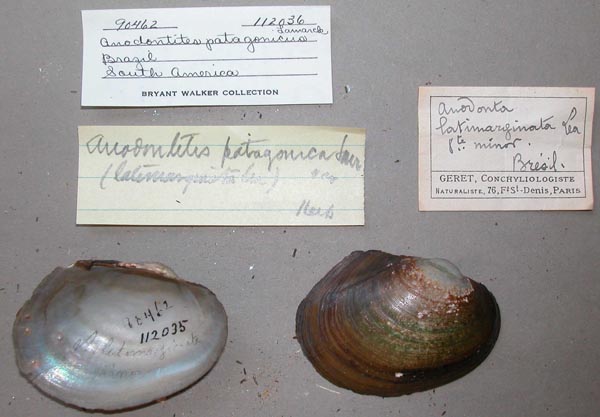 90462 112036
Anodontites patagonicus
Lamarck
Brazil
South America
BRYANT WALKER COLLECTION
Anodontites patagonica Lam
(latimarginata Lea)
Anodonta
latimarginata Lea
minor.
Brésil.
GERET, CONCHYLIOLOGISTE
NATURALISTE, 76, Fg St-Denis, PARIS
90462
112035
latimarginata
minor